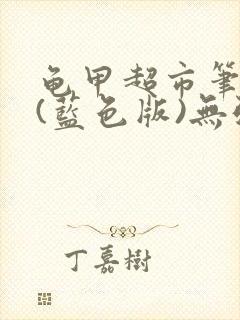 龟甲超市筆
(藍色版)無
丁嘉樹